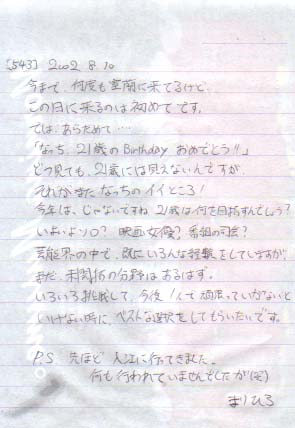 [543] 2002. 8. 10
今まで、何度も室蘭に来てるけど、
この日に来るのは初めてです。
では、あらためて….
「なっち、21歳のBirthday おめでとう!!」
どう見ても、21歳には見えないんですが、
それがまたなっちのイイところ!
今年は、じゃないですね、21歳は何を目指すんでしょう?
いよいよソロ? 映画女優? 番組の司会?
芸能界の中で、既にいろんな経験をしていますが、
まだ、未開拓の分野はあるはず。
いろいろ挑戦して、今後1人で頑張っていかないと
いけない時に、ベストな選択をしてもらいたいです。
P.S 先ほど、入江に行ってきました。
何も行われていませんでしたが(笑)
まりひろ